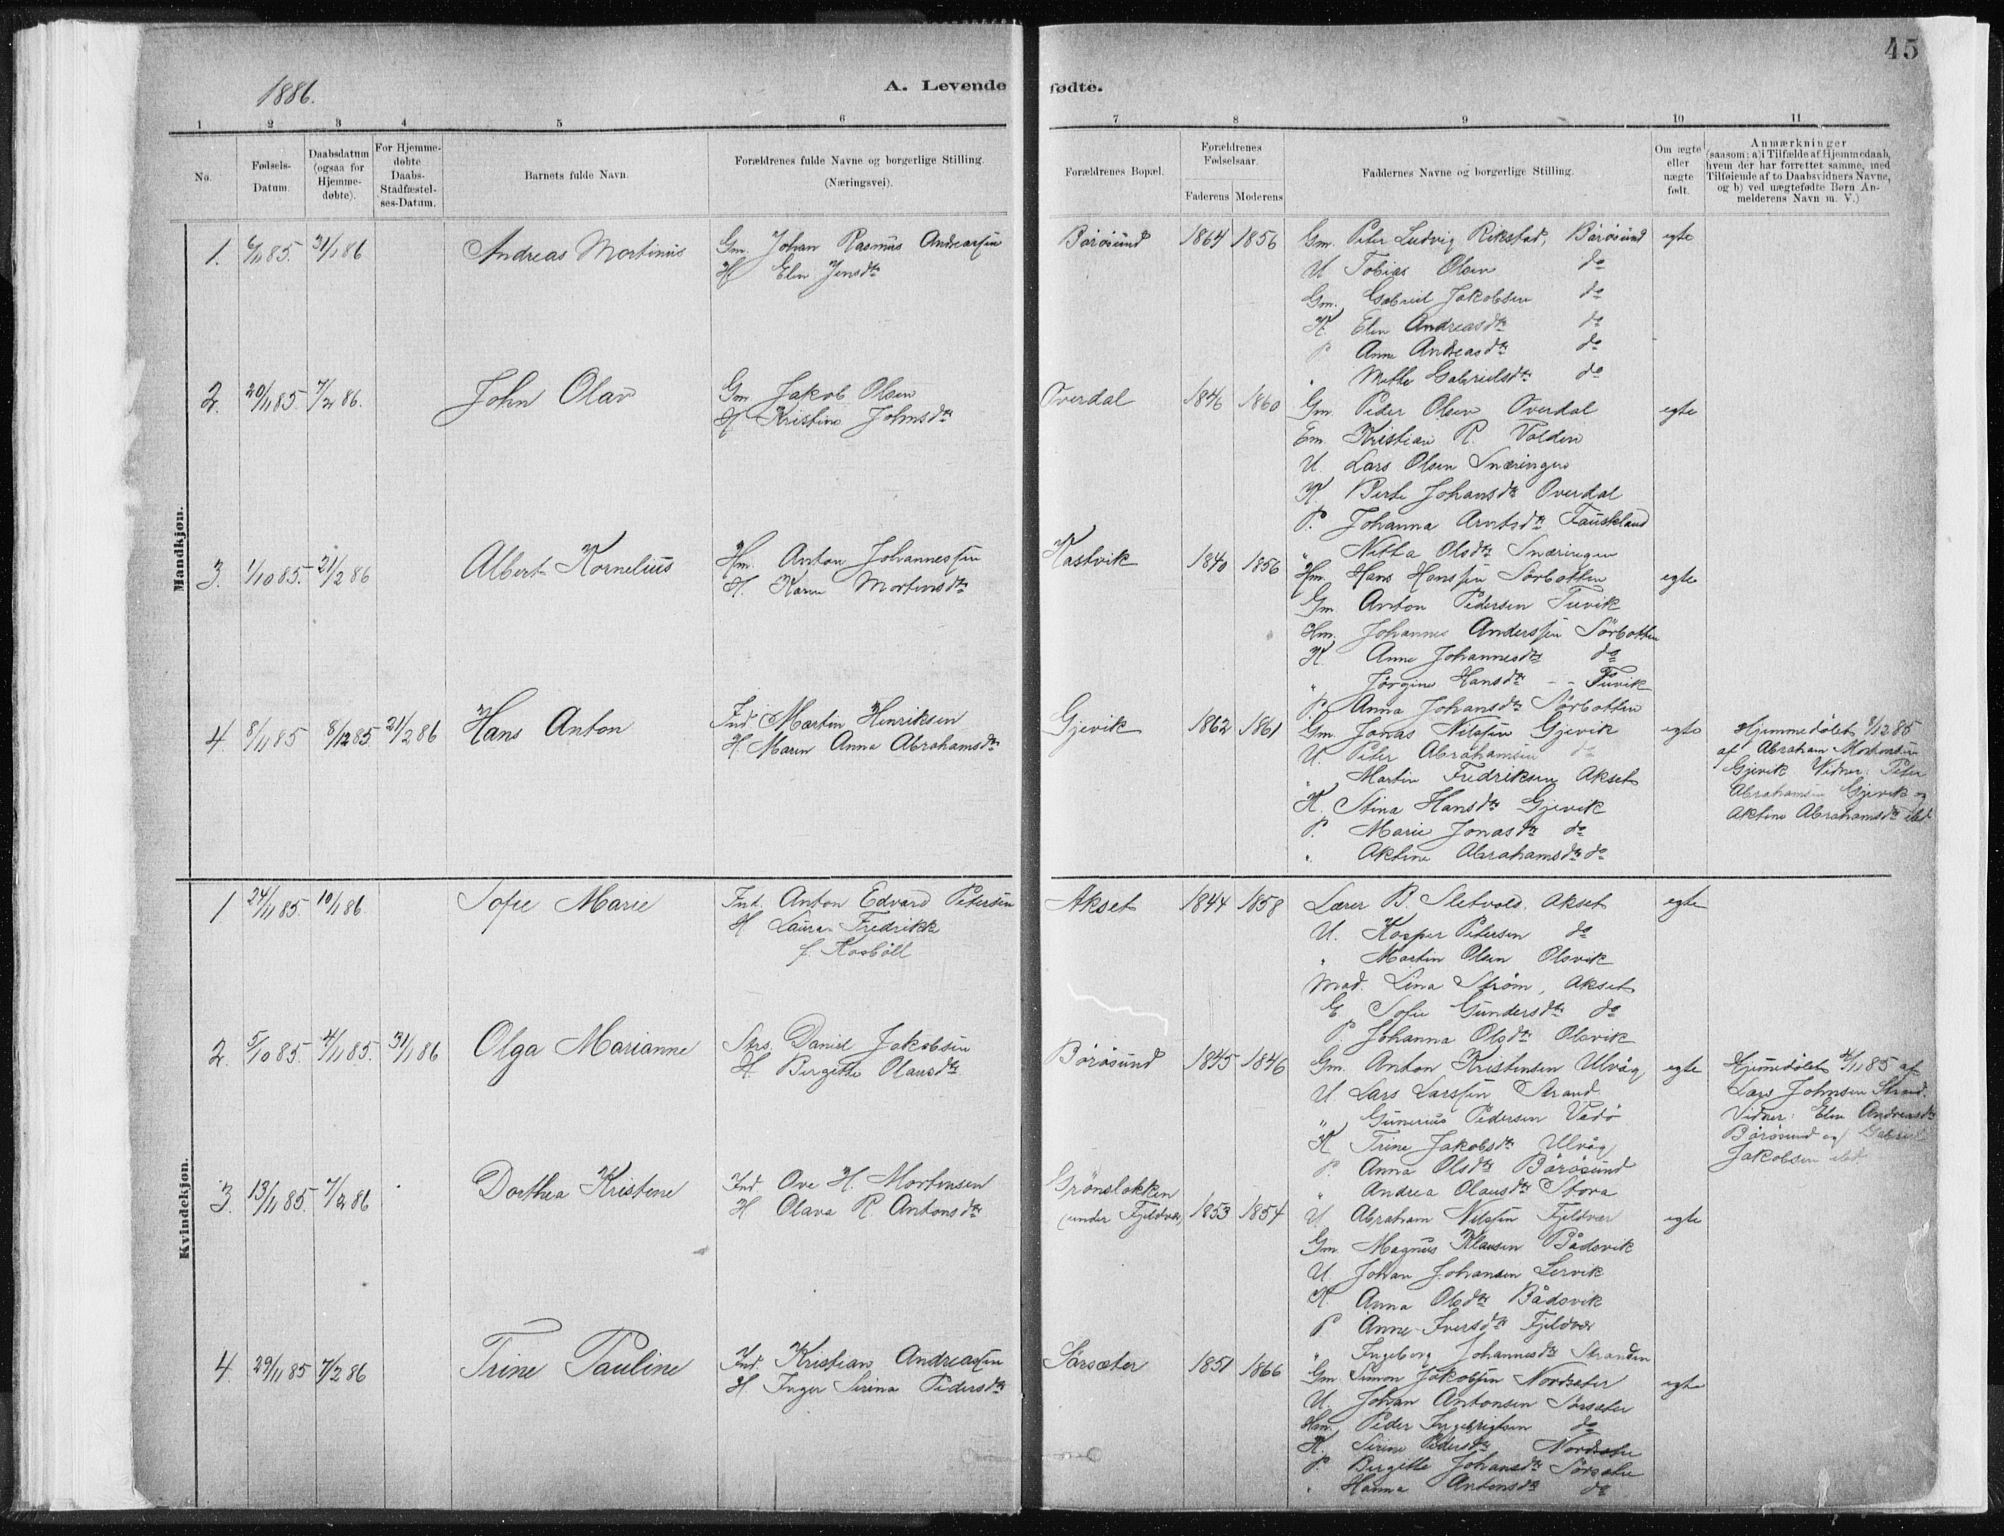 45
1886.
A. Levende fødte.
1 2 3 4 5 6 7 8 9 10 11
No.
Fødsels-Datum.
Daabsdatum (ogsaa for Hjemme-døbte).
For Hjemme-døbte Daabs-Stadfæstel-ses-Datum.
Barnets fulde Navn.
Forældrenes fulde Navne og borgerlige Stilling.
(Næringsvei).
Forældrenes Bopæl.
Forældrenes Fødselsaar.
Faderens Moderens
Faddernes Navne og borgerlige Stilling.
Om ægte eller uægte født.
Anmærkninger
(saasom: a) i Tilfælde af Hjemmedaab,
hvem der har forrettet samme, med
Tilføiende af to Daabsvidners Navne,
og b) ved uægtefødte Børn An-
melderens Navn m. V.)
Mandkjøn.
1. 6/11 85 31/1 86 Andreas Mortinus
Gm. Johan Rasmus Andreassen
H Elen Jensdtr
Börösund 1864 1856
Gm. Peter Ludvig Rikstad, Börösund egte
U Tobias Olsen do
Gm. Gabriel Jakobsen do
K. Elen Andreasdtr do
P Anne Andreasdtr do
" Methe Gabrielsdtr do
2. 20/11 85. 7/2 86. John Olav
Gm Jakob Olsen
H Kristine Johnsdtr
Overdal 1846 1860
Gm. Peder Olsen Overdal egte
Em. Kristian R. Volden
U. Lars Olsen Snæringen
K. Berte Johansdtr Overdal
P. Johanna Arntsdtr Fauskland
" Olsdtr Snæringen
3. 1/10 85. 21/2 86 Albert Kornelius
Hm. Anton Johannessen
H. Karen Mortensdtr
Kastvik 1840 1856
Hm. Hans Hanssen Sörbotten egte
Gm. Anton Pedersen Tuvik
Hm. Johannes Anderssen Sörbotten
K. Anne Johannesdtr do
" Jörgine Hansdtr Tuvik
P. Anna Johansdtr Sörbotten
4. 8/11 85 8/12 85 21/2 86 Hans Anton
Ind Martin Henriksen
H Maren Anna Abrahamsdtr
Gjevik 1862 1861
Gm Jonas Nilssen Gjevik egte
U. Peter Abrahamsen do
" Martin Fredriksen Akset
K. Stina Hansdtr Gjevik
P. Marie Jonasdtr do
" Aktine Abrahamsdtr do
Hjemmedøbt 8/12 85
af Abraham Mortensen
Gjevik Vidner: Peter
Abrahamsen Gjevik og
Aktine Abrahamsdtr ibd.
Kvindekjøn.
1 24/11 85. 10/1 86. Sofie Marie
Ind. Anton Edvard Petersen
H Laura Fredrikk
f. Kosböll
Akset 1844 1858
Lærer B. Sletvold. Akset egte
U. Kasper Petersen do
" Martin Olsen Olsvik
Mad. Lina Strøm, Akset
E Sofie Gundersdtr do
P. Johanna Olsdtr Olsvik
2. 5/10 85. 4/11 85. 31/1 86 Olga Marianne
Strs. Daniel Jakobsen
H Birgitte Olausdtr
Börösund 1845 1846
Gm. Anton Kristensen Ulvåg egte
U Lars Larssen Strand
" Gunerius Pedersen Vedö
K Trine Jakobsdtr Ulvåg
P. Anna Olsdtr Börösund
" Andrea Olausdtr Stora
Hjemdøbt 4/11 85 af
Lars Johnsen Strand.
Vidner: Elen Andreasdtr
Börösund og Gabriel
Jakobsen ibd.
3. 13/11 85. 7/2 86 Dorthea Kristine
Ind Ove H. Mortensen
H Olava R Antonsdtr
Grönslokken
(under Fjeldvær) 1853 1854
U. Abraham Nilssen Fjeldvær egte
Gm. Magnus Klausen Bådsvik
U. Johan Johansen Lervik
K. Anna Olsdtr Bådsvik
P Anne Iversdtr Fjeldvær
" Ingeborg Johannesdtr Stranden
4. 29/11 85 7/2 86 Trine Pauline
Ind. Kristian Andreassen
H Inger Serina Pedersdtr
Sörsæter 1851 1866
Gm Simon Jakobsen Nordsæter egte
U. Johan Antonsen Sörsæter
Hm. Peder Ingebrigtsen do
K. Sirine Pedersdtr Nordsæter
P. Birgitte Johansdtr Sörsæter
" Hanna Antonsdtr do